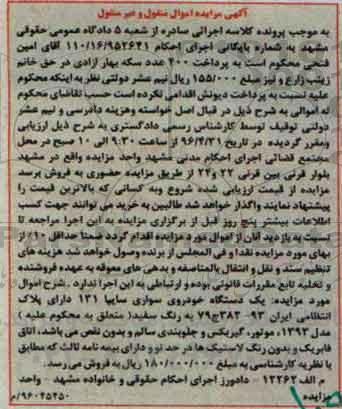 آگهی مزایده اموال منقول و غیر منقول
به موجب پرونده کلاسه اجرائی صادره از شعبه ۵ دادگاه عمومی حقوقی
مشهد به شماره بایگانی اجرای احکام ۱۱۰/۱۶/۹۵۲۶۴۱ آقای امین
فتحی محکوم است به پرداخت ۴۰۰ عدد سکه بهار ازادی در حق خانم
زینب زارع و نیز مبلغ ۱۵۵/۰۰۰ ریال نیم عشر دولتی نظر به اینکه محکوم
علیه نسبت به پرداخت دیونش اقدامی نکرده است حسب تقاضای محکوم
له اموالی به شرح ذیل در قبال اصل خواسته وهزینه دادرسی و نیم عشر
دولتی توقیف توسط کارشناس رسمی دادگستری به شرح ذیل ارزیابی
ومقرر گردیده در تاریخ ۹۶/۴/۳۱ از ساعت ۹:۳۰ الی ۱۰ صبح در محل
مجتمع قضائی اجرای احکام مدنی مشهد واحد مزایده واقع در مشهد
بلوار قرنی بین قرنی ۲۲ و۲۴ از طریق مزایده حضوری به فروش برسد
مزایده از قیمت ارزیابی شده شروع وبه کسانی که بالاترین قیمت را
پیشنهاد نمایند واگذار خواهد شد طالبین به خرید می توانند جهت کسب
اطلاعات بیشتر پنج روز قبل از برگزاری مزایده به این اجرا مراجعه تا
نسبت به بازدید آنان از اموال مورد مزایده اقدام گردد ضمنا حداقل ۱۰٪ از
بهای مورد مزایده نقدا و فی المجلس از برنده وصول خواهد شد هزینه های
تنظیم سند و نقل و انتقال بالمناصفه و بدهی های معوقه به عهده فروشنده
و تخلیه تابع مقررات قانونی بوده و ارتباطی به این اجرا ندارد .شرح اموال
مورد مزایده: یک دستگاه خودروی سواری سایپا ۱۳۱ دارای پلاک
انتظامی ایران ۹۳- ۳۸۲ج۷۹ به رنگ سفید( متعلق به محکوم علیه )
مدل ۱۳۹۳، موتور، گیربکس و جلوبندی سالم و بدون نقص می باشد، اتاق
فابریک و بدون رنگ لاستیک ها در حد نو و دارای بیمه نامه ثالث که مطابق
با نظریه کارشناسی به مبلغ ۱۸۰/۰۰۰/۰۰۰ ریال به فروش می رسد.
م الف ۱۲۲۶۲ - دادورز اجرای احکام حقوقی و خانواده مشهد - واحد
مزایده ۹۶۰۴۵۴۵۰/م